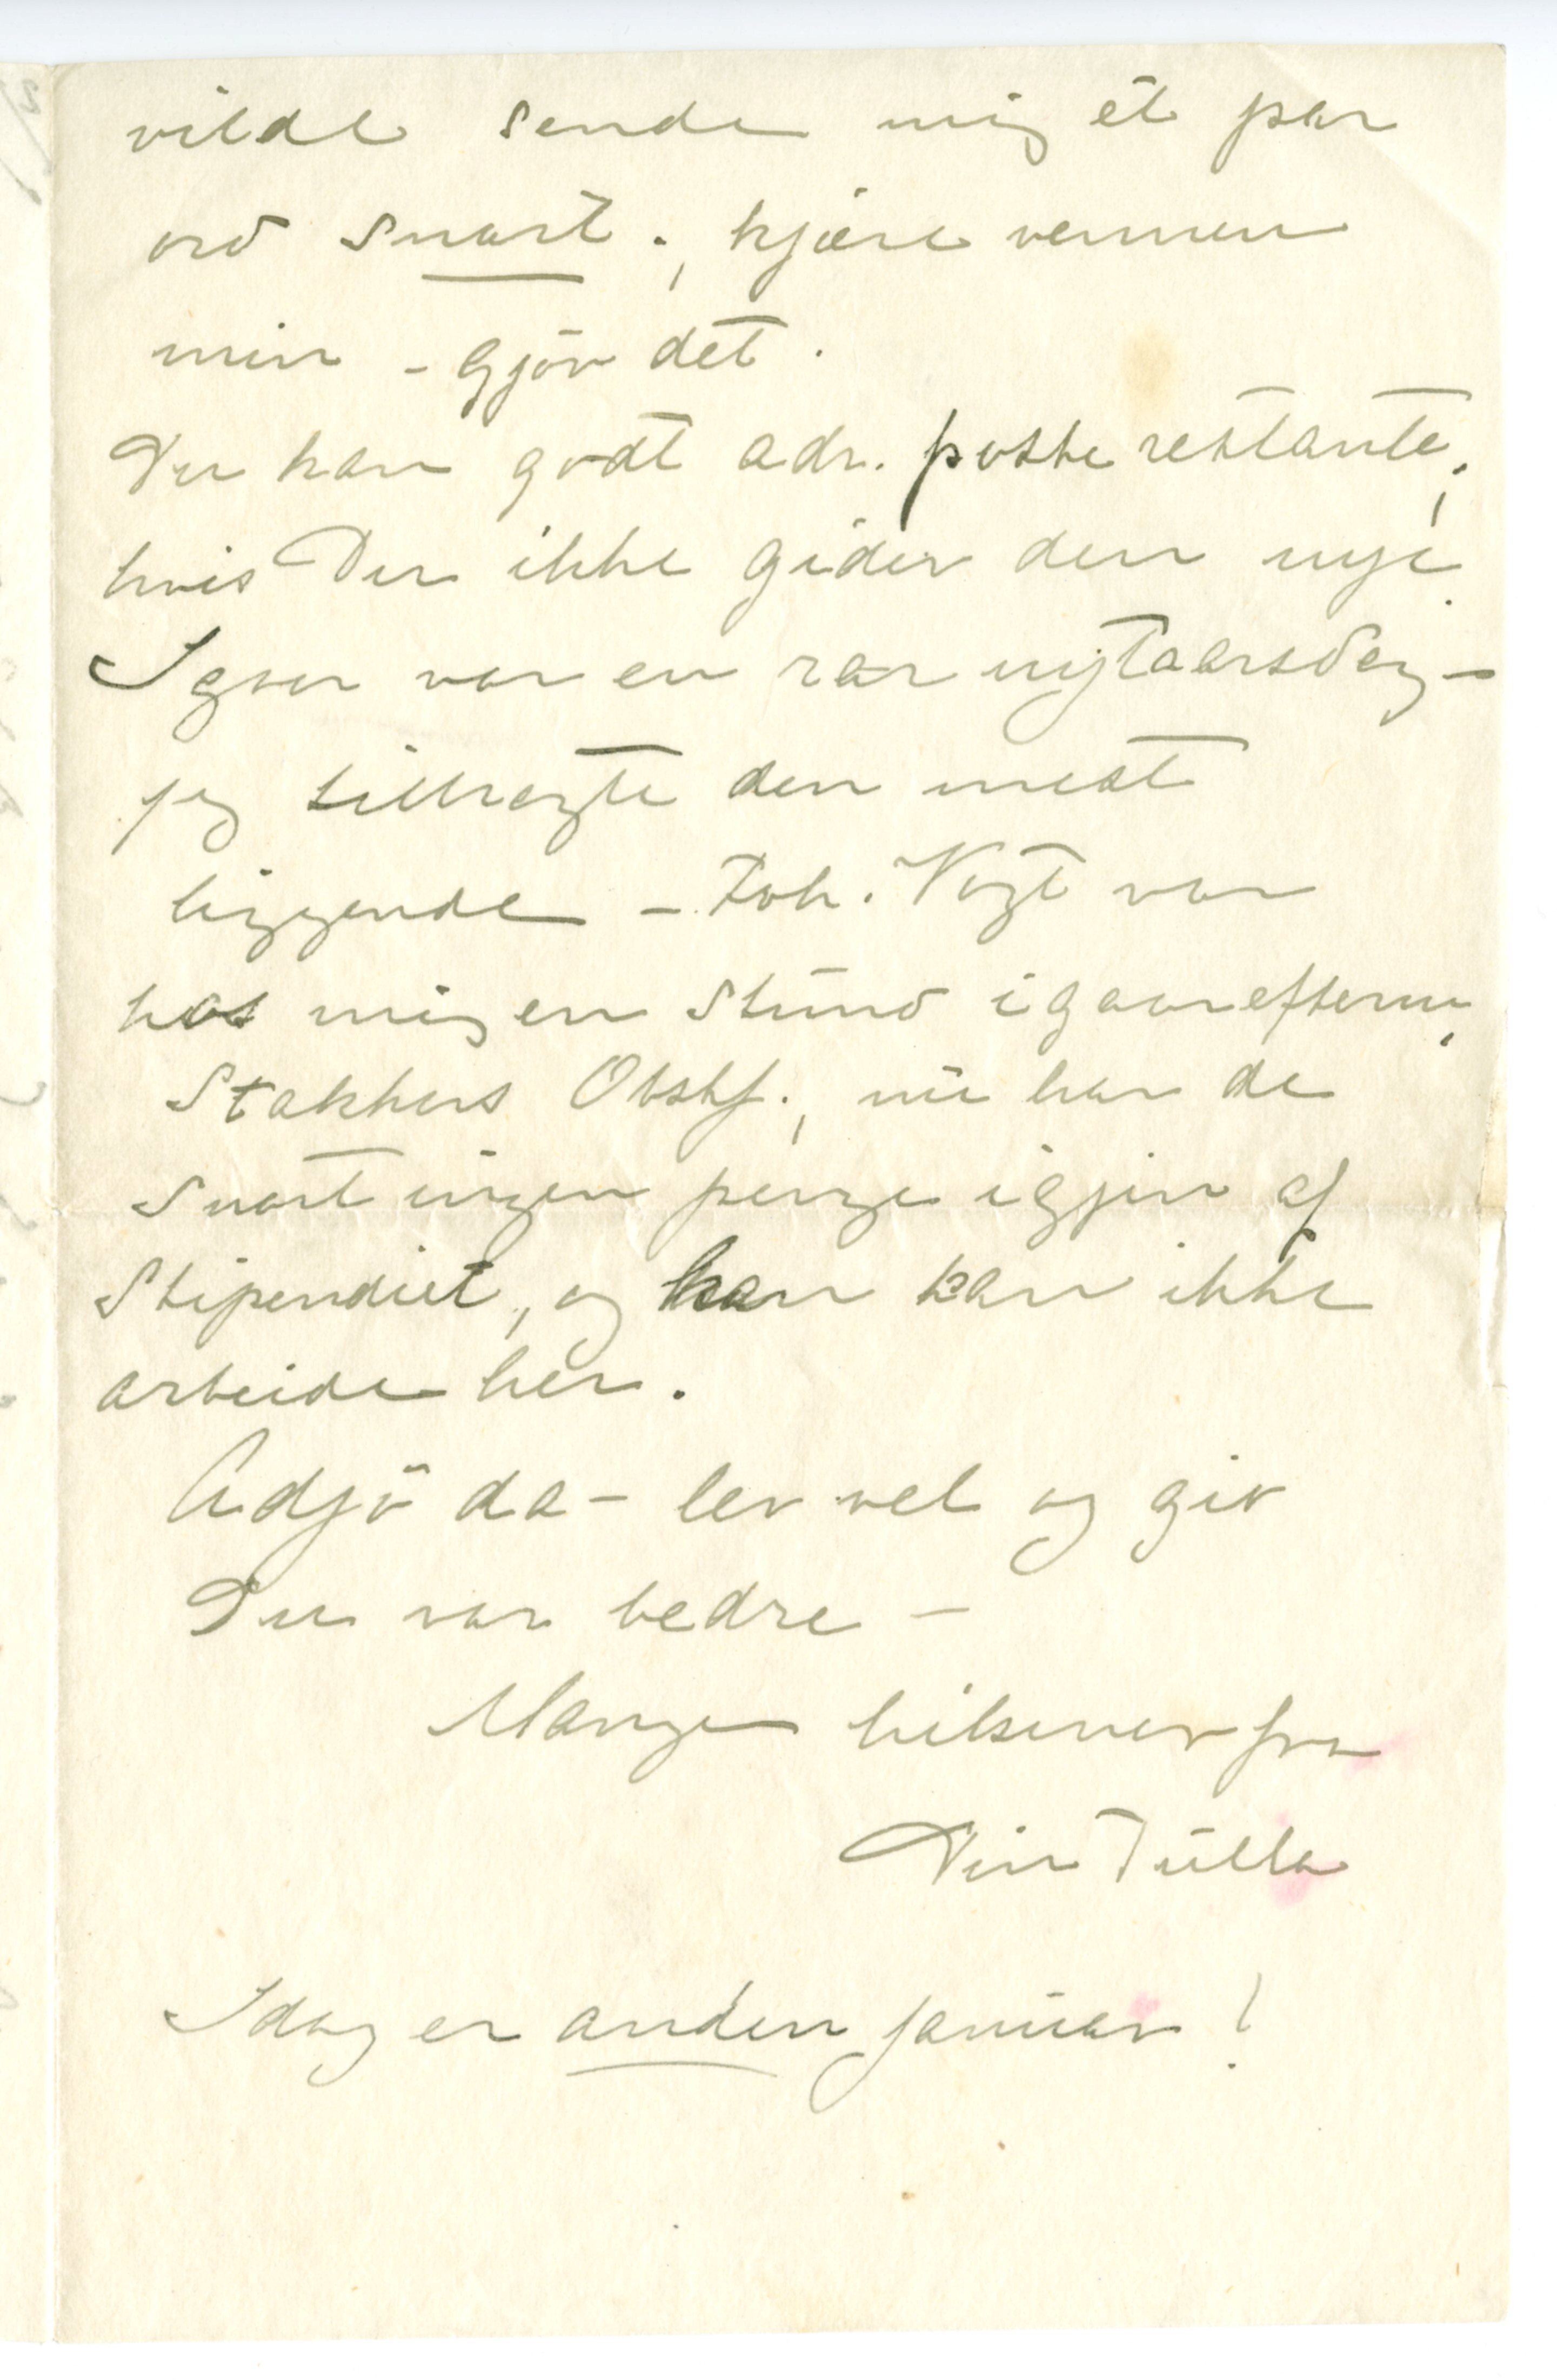 vilde sende mig et par
ord snart; kjære vennen
min – gjør det.
Du kan godt adr. poste restante,
hvis Du ikke gider den nye.
Igaar var en rar nytaarsdag –
jeg tilbragte den mest
liggende – Joh. Vogt var
hos mig en stund igaar efterm,
Stakkers Obstf., nu har de
snart ingen penge igjen af
Stipendiet, og han kan ikke
arbeide her.
Adjø da – lev vel og giv
Du var bedre –
Mange hilsener fra
Din Tulla
Idag er anden januar!